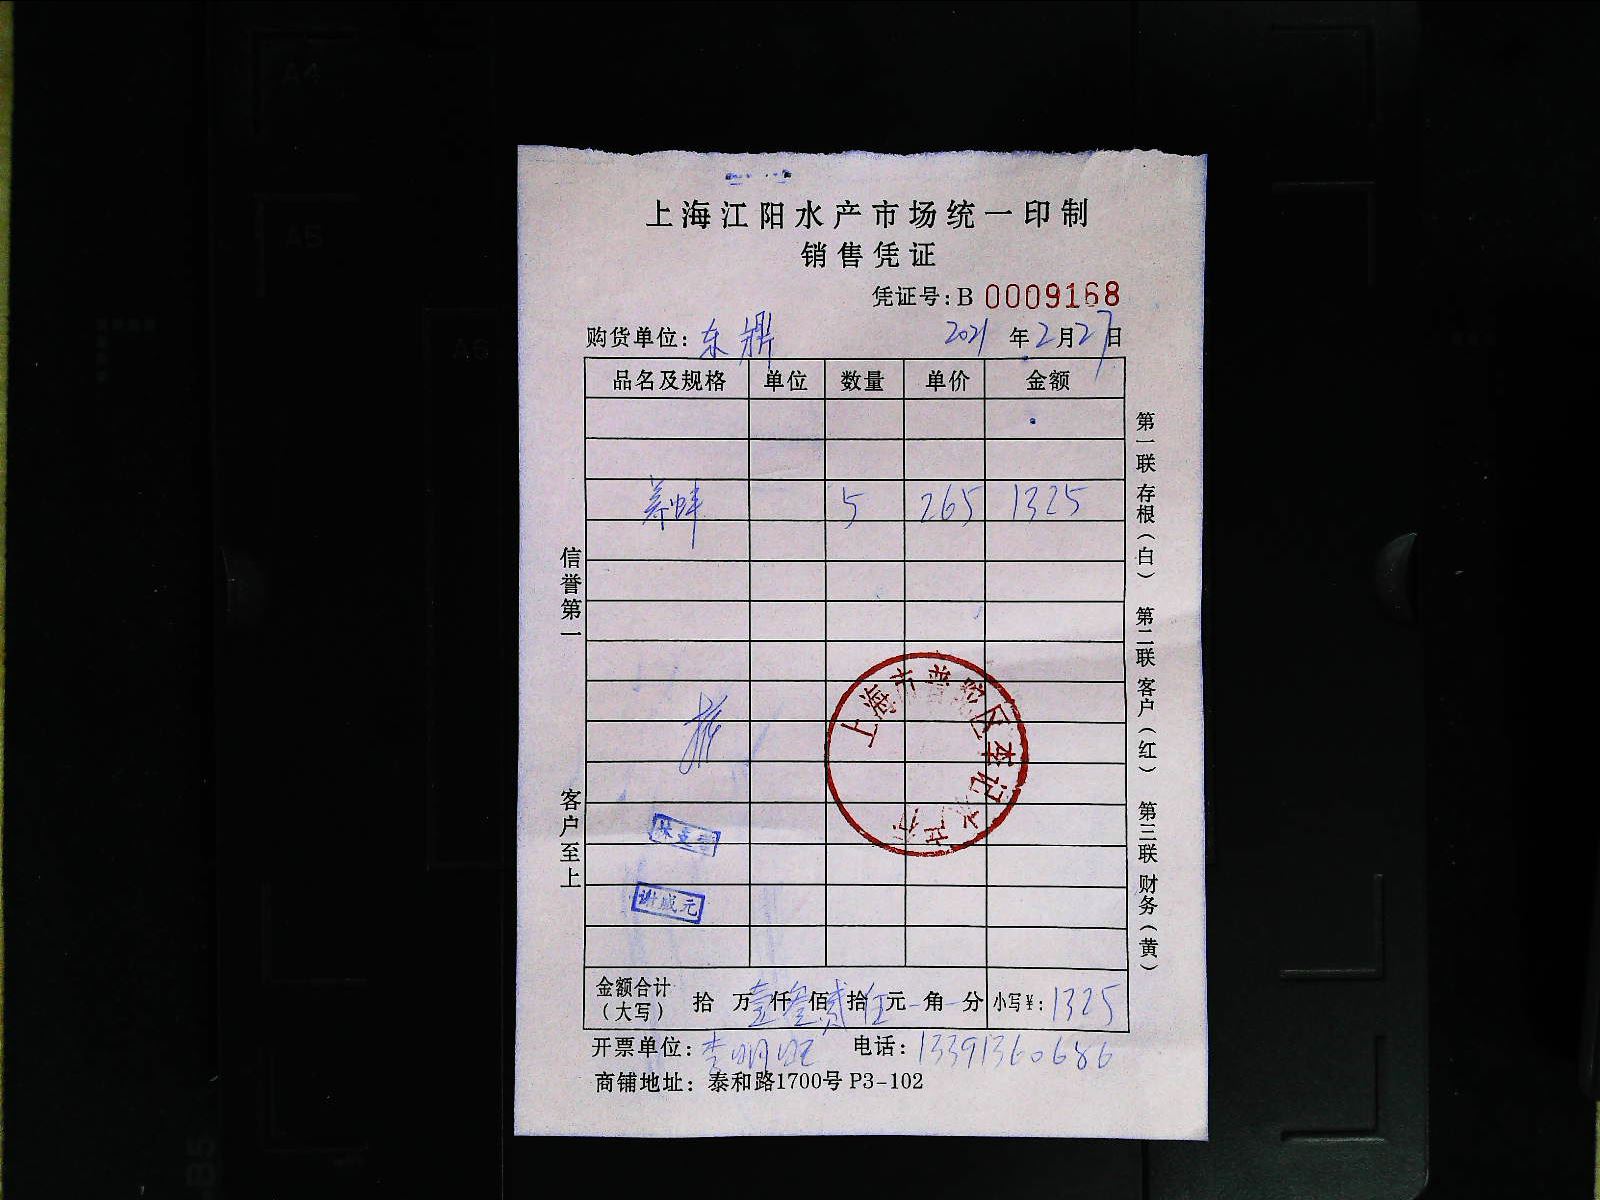 上海江阳水产市场统一印制
销售凭证
凭证号:B 0009168
购货单位: 东鼎 2021 年 2 月 27 日
品名及规格 单位 数量 单价 金额
5 265 1325
信誉第一
客户至上
第一联 存根(白) 第二联 客户(红) 第三联 财务(黄)
上海市普陀区李记水产行
谢咸元
金额合计(大写) 拾 万 壹 仟 叁 佰 贰 拾 伍 元 - 角 - 分 小写¥: 1325
开票单位: 李明旺 电话: 13391360686
商铺地址: 泰和路1700号 P3-102
A4
A5
A6
B5